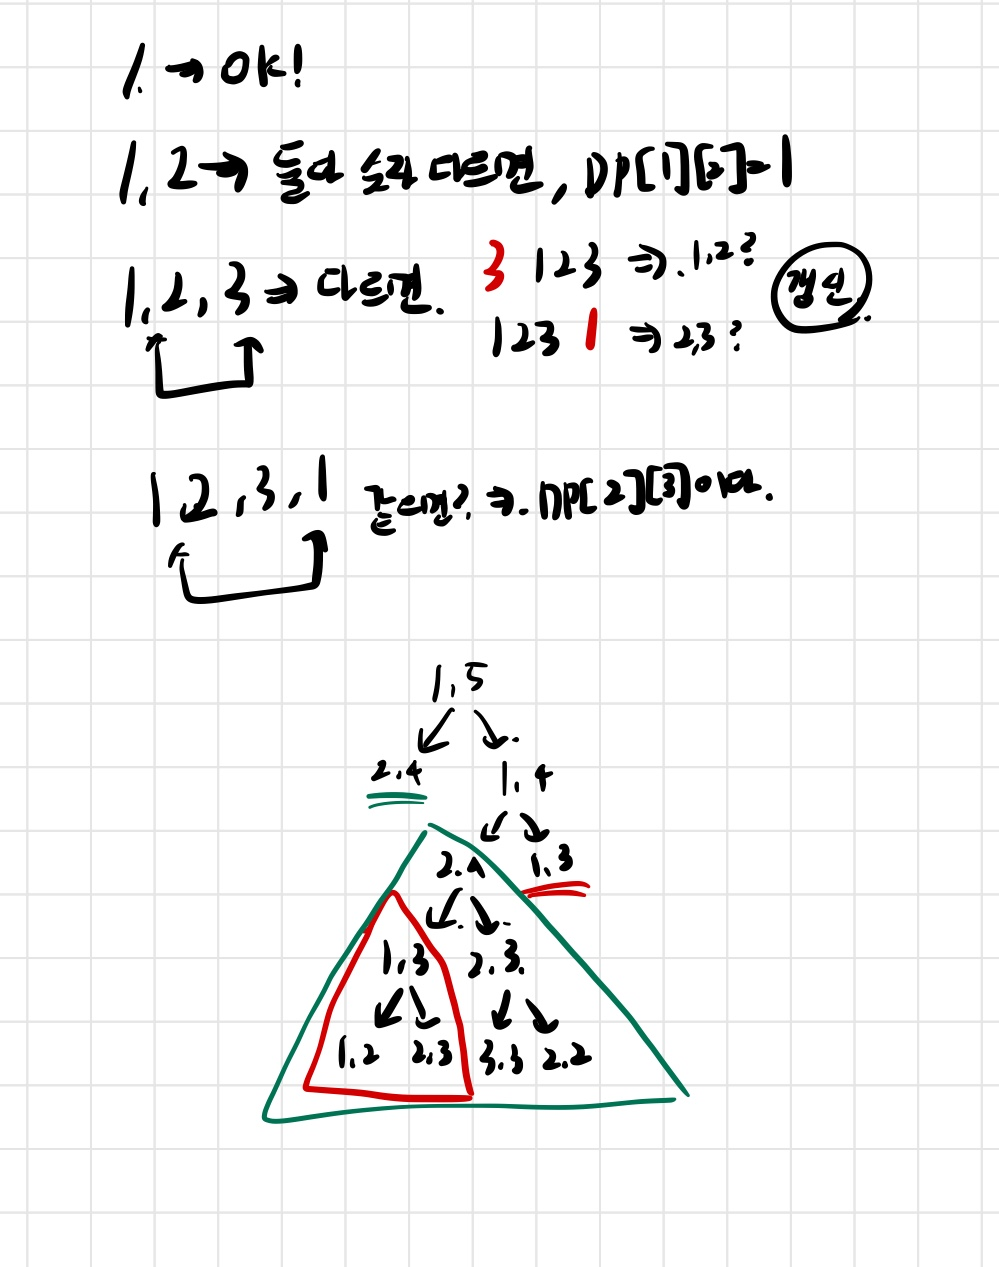 1. → OK!
1, 2 → 둘다 숫자 다르면, DP[1][2]=1
1, 2, 3 ⇒ 다르면. 3 123 ⇒. 1,2? 갱신.
123 1 ⇒ 2,3?
1, 2, 3, 1 같으면? ⇒. DP[2][3]이다.
1, 5
2.4 1, 4
2.4 1.3
1,3 2.3.
1.2 2,3 3.3 2.2